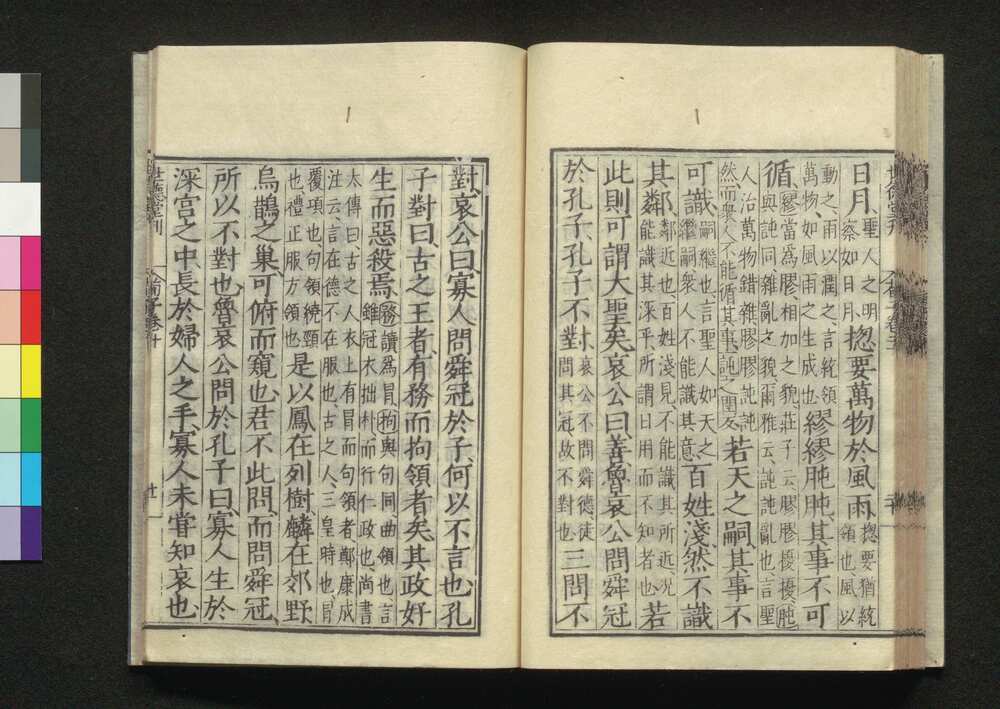 日月聖人之明察如日月揔要萬物於風雨揔要猶統領也風以
動之雨以潤之言統領萬物如風雨之生成也繆繆肫肫其事不可
循繆當爲膠相加之貌莊子云膠膠擾擾肫與訰同雜亂之貌爾雅云訰訰亂也言聖
人治萬物錯雜膠膠訰訰然而衆人不能循其事訰之閏反若天之嗣其事不
可識嗣繼也言聖人如天之繼嗣衆人不能識其意百姓淺然不識
其鄰鄰近也百姓淺見不能識其所近况能識其深乎所謂日用而不知者也若
此則可謂大聖矣哀公曰善魯哀公問舜冠
於孔子孔子不對哀公不問舜德徒問其冠故不對也三問不
對哀公曰寡人問舜冠於子何以不言也孔
子對曰古之王者有務而拘領者矣其政好
生而惡殺焉務讀爲冒拘與句同曲領也言雖冠衣拙朴而行仁政也尚書
大傳曰古之人衣上有冒而句領者鄭康成注云言在德不在服也古之人三皇時也冒
覆項也句領繞頸也禮正服方領也是以鳳在列樹麟在郊野
烏鵲之巢可俯而窺也君不此問而問舜冠
所以不對也魯哀公問於孔子曰寡人生於
深宮之中長於婦人之手寡人未嘗知哀也
世德堂刊
荀子卷二十